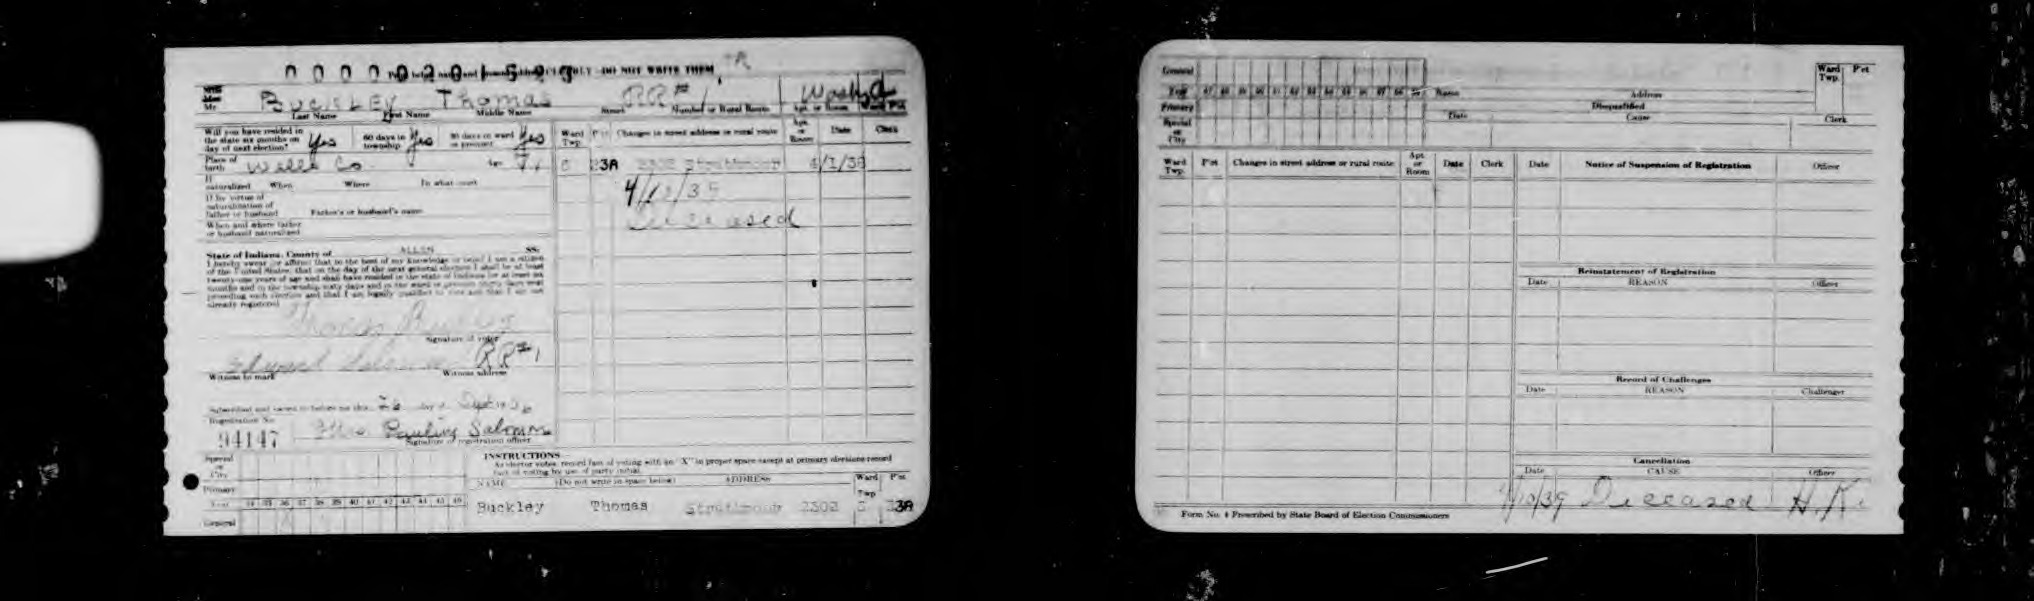 DO NOT WRITE THEM
BUCKLEY Thomas RR#1
Mr. Last Name First Name Middle Name Street Number or Rural Route Apt. or Room Ward Pct
Will you have resided in the state six months on day of next election? Yes 60 days in township Yes 30 days in ward or precinct Yes
Ward Twp. Pct Changes in street address or rural route Apt. or Room Date Clerk
Place of birth Wells Co. Age
23A 2302 Strathmoor 4/1/38
If naturalized When Where In what court
4/10/39
If by virtue of naturalization of father or husband Father's or husband's name
Deceased
When and where father or husband naturalized
State of Indiana, County of ALLEN SS:
I hereby swear (or affirm) that to the best of my knowledge or belief I am a citizen
of the United States, that on the day of the next general election I shall be at least
twenty-one years of age and shall have resided in the state of Indiana for at least six
months and in the township sixty days and in the ward or precinct thirty days next
preceding such election and that I am legally qualified to vote and that I am not
already registered
Thomas Buckley
Signature of voter
RR#1
Witness to mark Witness address
Subscribed and sworn to before me this 26 day of Sept
Registration No.
94147 Mrs. Pauline Salomon
Signature of registration officer
Special or City
Primary
Year 34 35 36 37 38 39 40 41 42 43 44 45 46
General
INSTRUCTIONS
An elector votes, record fact of voting with an "X" in proper space except at primary elections record
fact of voting by use of party initial.
NAME (Do not write in space below) ADDRESS Ward Twp Pct
Buckley Thomas Strathmoor 2302 23A
General
Year 47 48 49 50 51 52 53 54 55 56 57 58 Name Address Ward Twp. Pct
Primary
Disqualified
Special or City
Date Cause Clerk
Ward Twp. Pct Changes in street address or rural route Apt. or Room Date Clerk Date Notice of Suspension of Registration Officer
Reinstatement of Registration
Date REASON Officer
Record of Challenges
Date REASON Challenger
Cancellation
Date CAUSE Officer
4/10/39 Deceased H.K.
Form No. 4 Prescribed by State Board of Election Commissioners